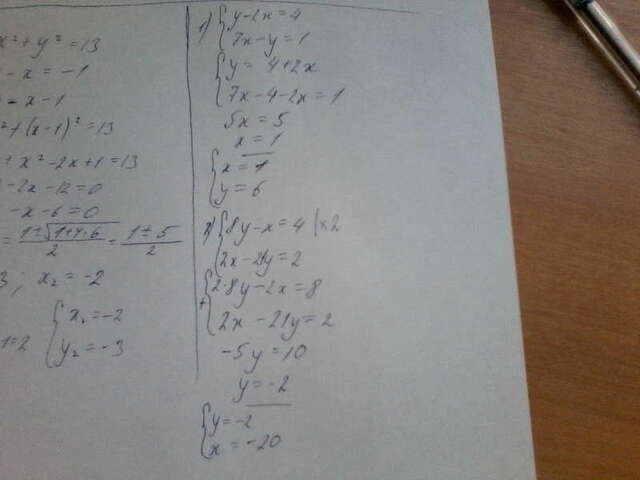 x² + y² = 13
- x = -1
= x - 1
² + (x-1)² = 13
+ x² - 2x + 1 = 13
- 2x - 12 = 0
- x - 6 = 0
= 1±√1+4·6 / 2 = 1 ± 5 / 2
3; x₂ = -2
1=2 { x₂ = -2
y₂ = -3
1) { y - 2x = 4
7x - y = 1
{ y = 4+2x
7x - 4 - 2x = 1
5x = 5
x = 1
{ x = 1
y = 6
2) { 8y - x = 4 | ×2
2x - 21y = 2
+ { 2·8y - 2x = 8
2x - 21y = 2
-5y = 10
y = -2
{ y = -2
x = -20